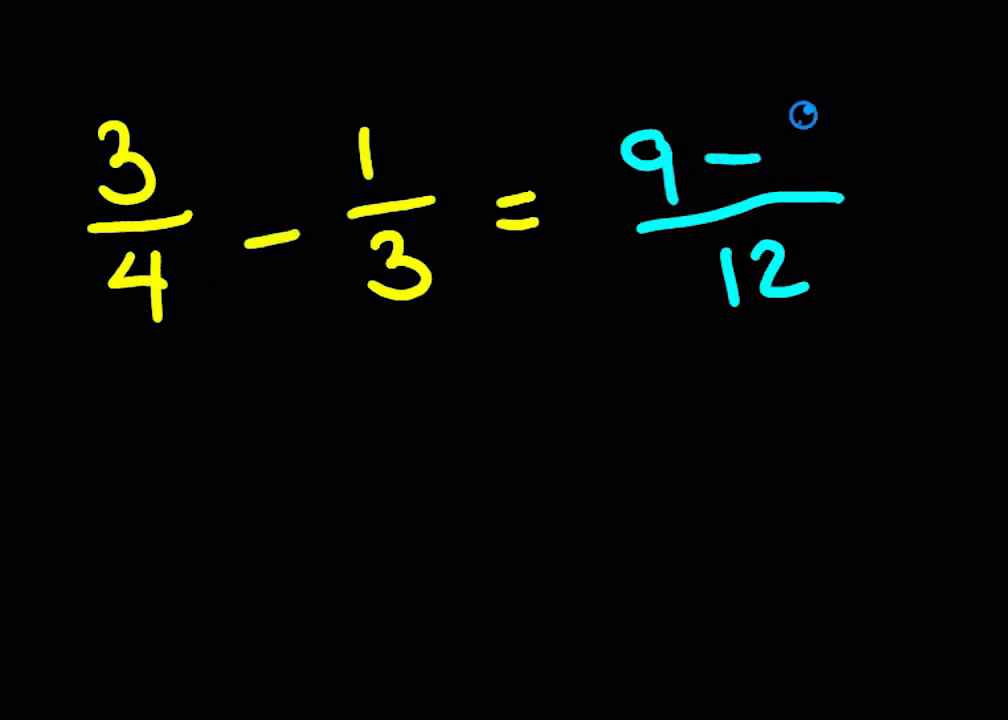 3/4 - 1/3 = 9 - /12